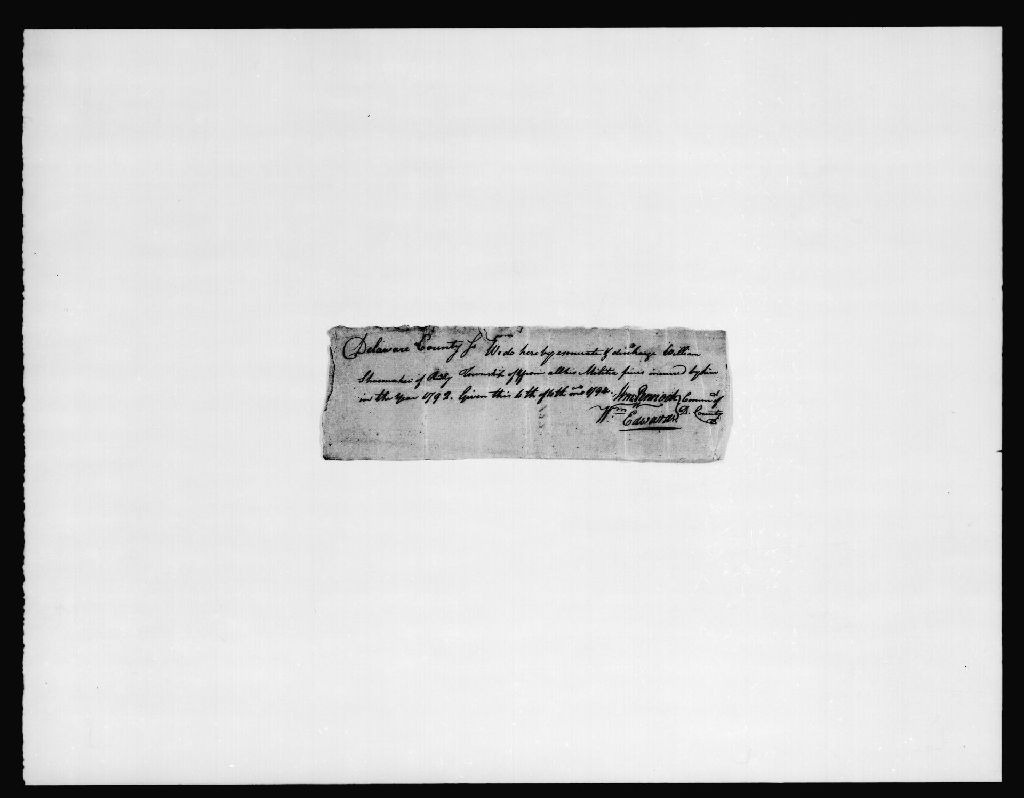 Delaware County Ss We do hereby exonerate & discharge William
Shoemaker of Ridly Township of & from all his Militia fines incurred by him
in the Year 1792. Given this 4th of 6th mo 1792. Wm Pennock Comms of
Wm Edwards D. County